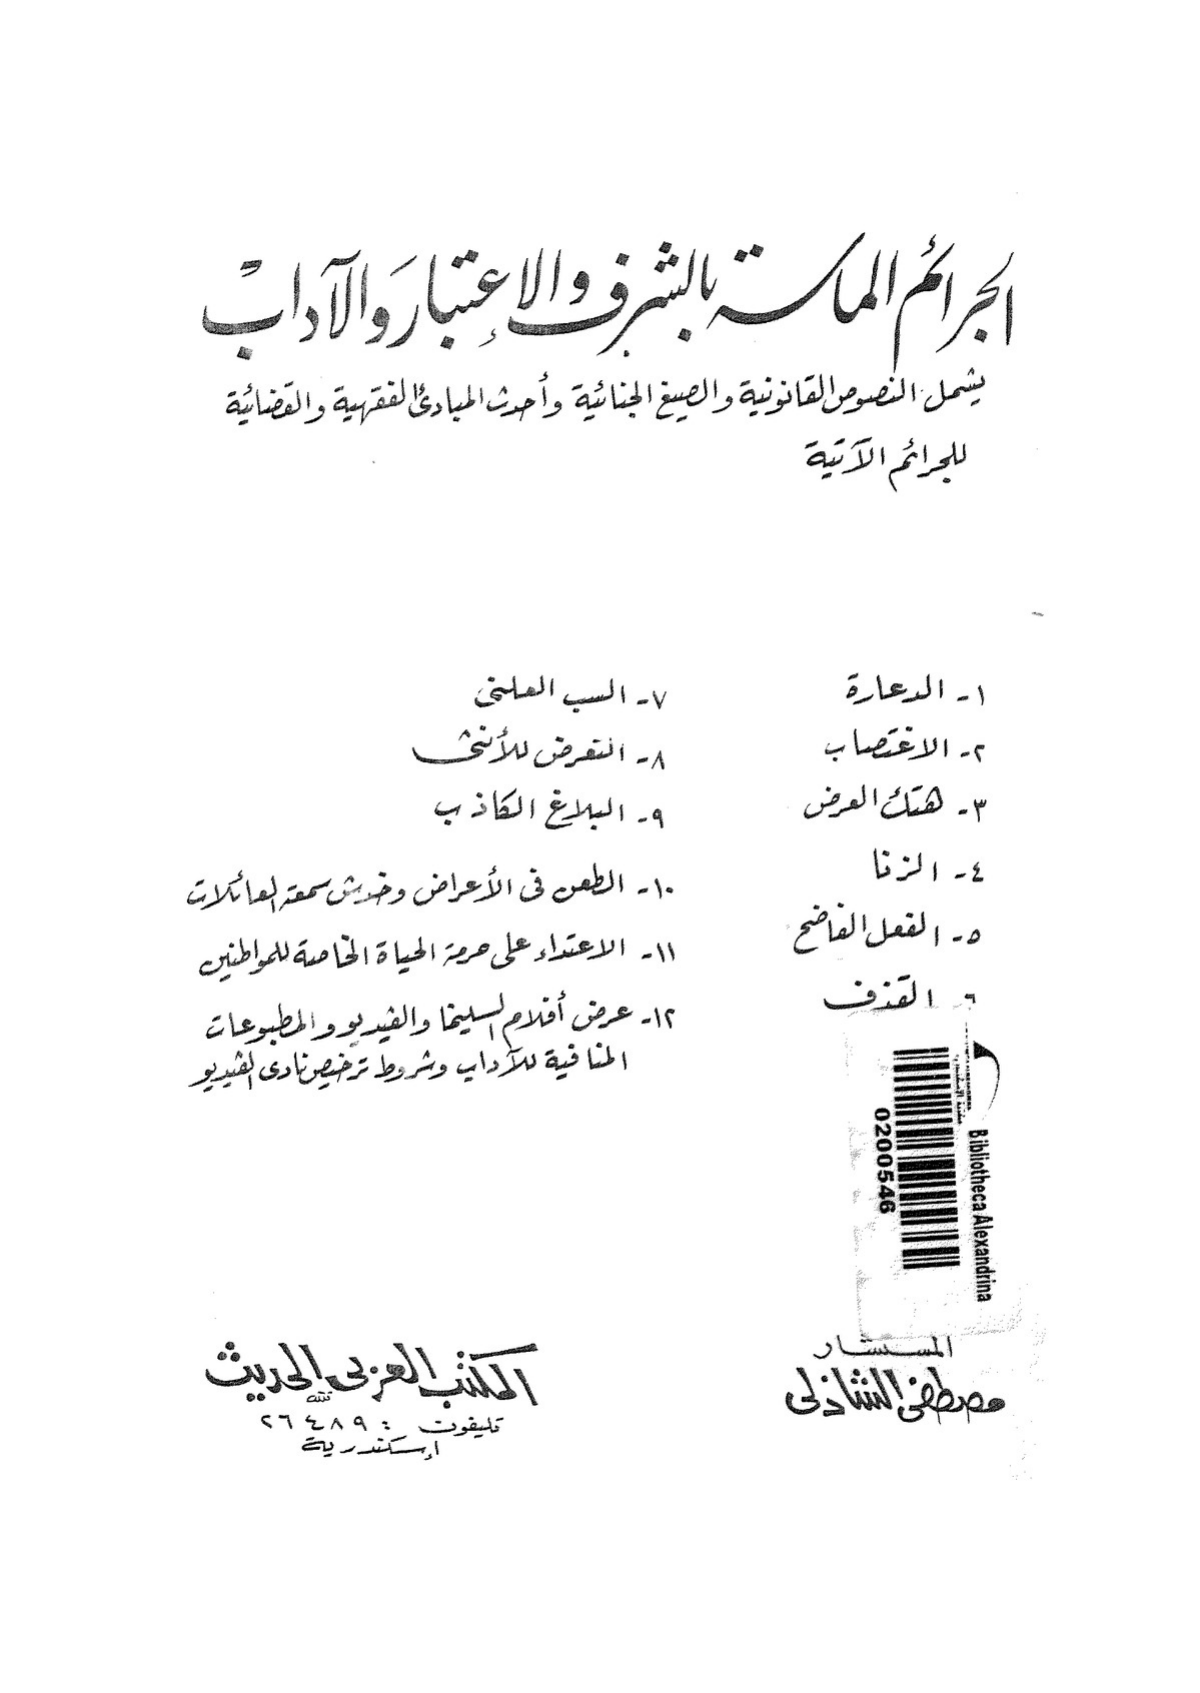 الجرائم الماسة بالشرف والإعتبار والآداب
يشمل النصوص القانونية والصيغ الجنائية وأحدث المبادئ الفقهية والقضائية
للجرائم الآتية
١- الدعارة
٢- الاغتصاب
٣- هتك العرض
٤- الزنا
٥- الفعل الفاضح
٦ القذف
٧- السب العلنى
٨- التعرض للأنثى
٩- البلاغ الكاذب
١٠- الطعن فى الأعراض وخدش سمعة العائلات
١١- الاعتداء على حرمة الحياة الخاصة للمواطنين
١٢- عرض أفلام السينما والفيديو والمطبوعات
المنافية للآداب وشروط ترخيص نادى الفيديو
Bibliotheca Alexandrina
0200546
المستشار
مصطفى الشاذلى
المكتب العربى الحديث
تليفون : ٢٦٤٨٩
إسكندرية